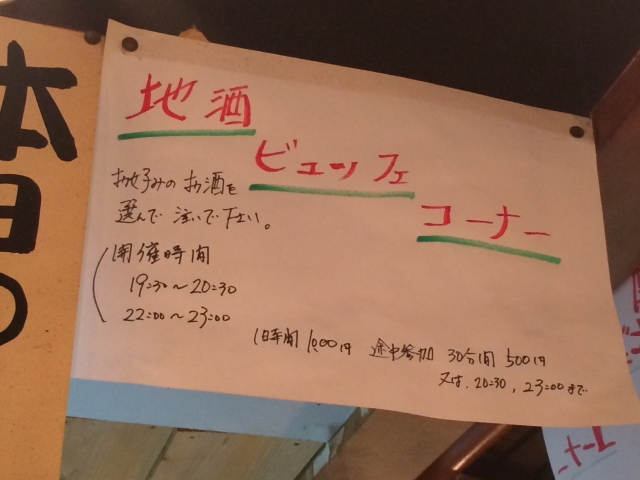 本日の
地酒
ビュッフェ
コーナー
お好みの お酒を
選んで 注いで下さい。
開催時間
19:30～20:30
22:00～23:00
1時間 1,000円 途中参加 30分間 500円
又は、20:30, 23:00まで